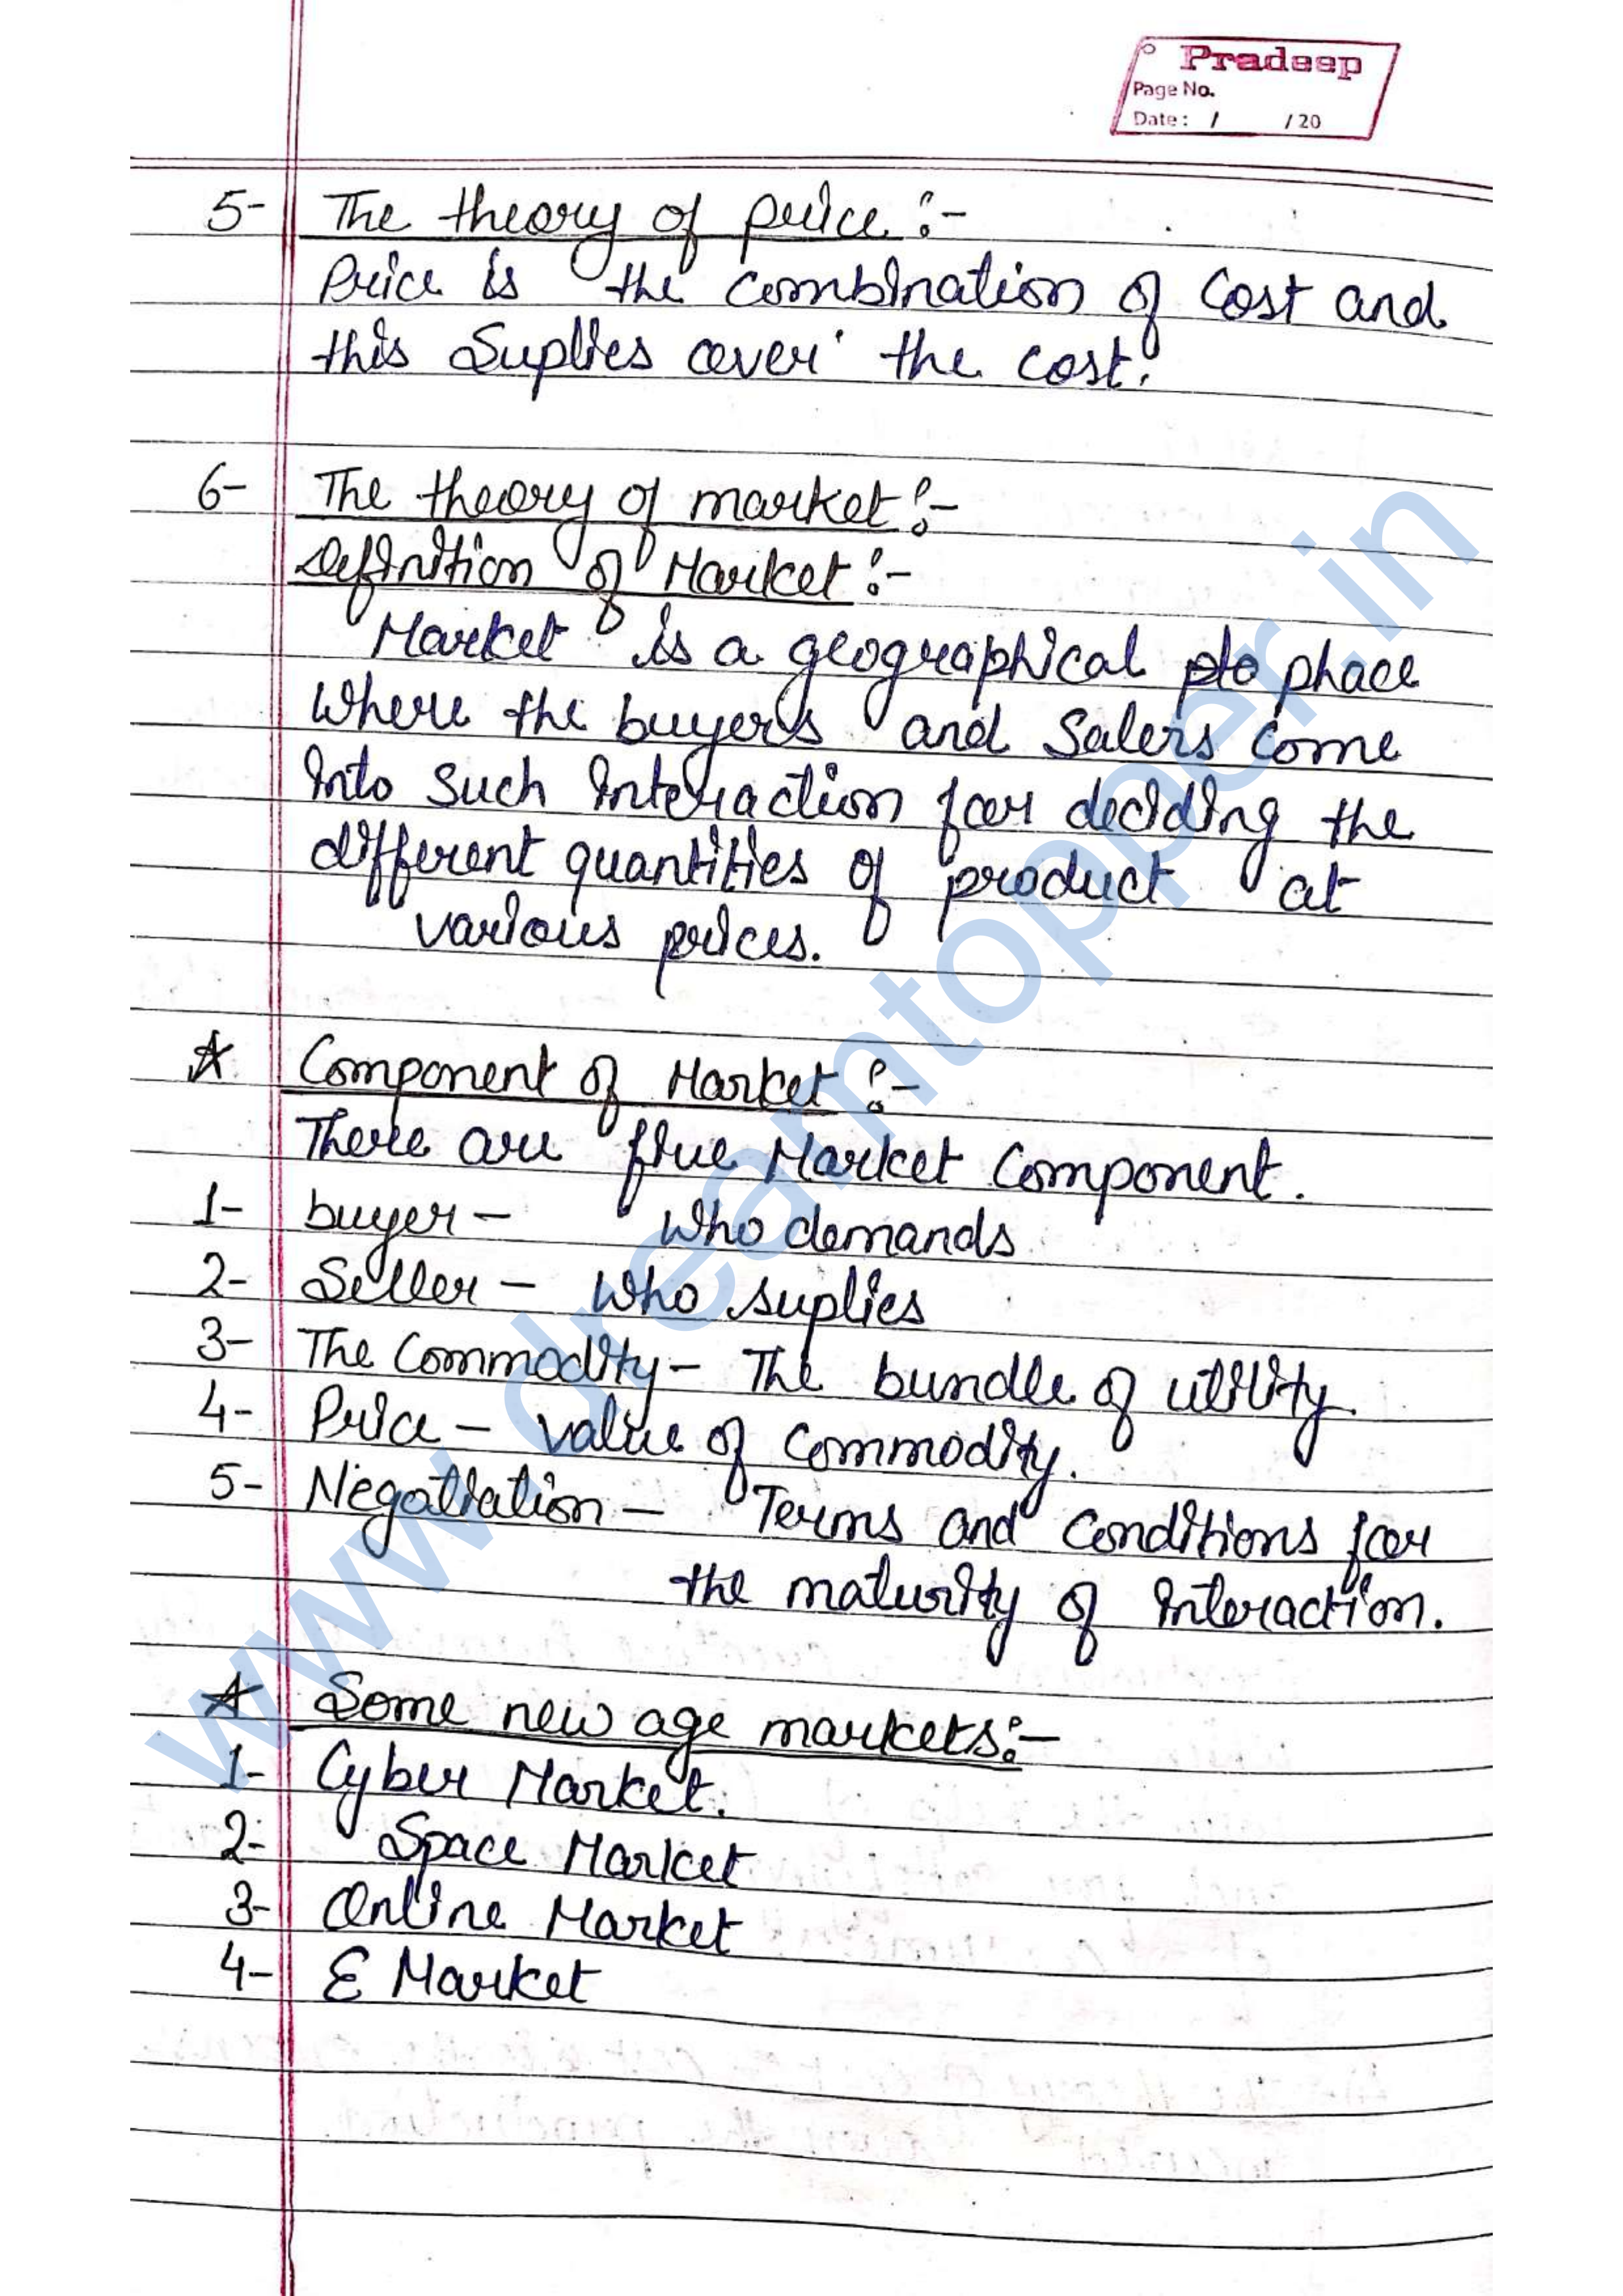 Pradeep
Page No.
Date : / / 20
5- The theory of price :-
Price is the combination of Cost and
this Suplies over the cost.
6- The theory of market :-
Definition of Market :-
Market is a geographical plo phace
where the buyers and Salers come
into such interaction for deciding the
different quantities of product at
various prices.
☆ Component of Market :-
There are five Market Component.
1- buyer - Who demands
2- Seller - Who suplies
3- The Commodity - The bundle of utility.
4- Price - value of Commodity.
5- Negotiation - Terms and Conditions for
the maturity of interaction.
☆ Some new age markets :-
1- Cyber Market.
2- Space Market
3- Online Market
4- E Market
www.dreamtopper.in